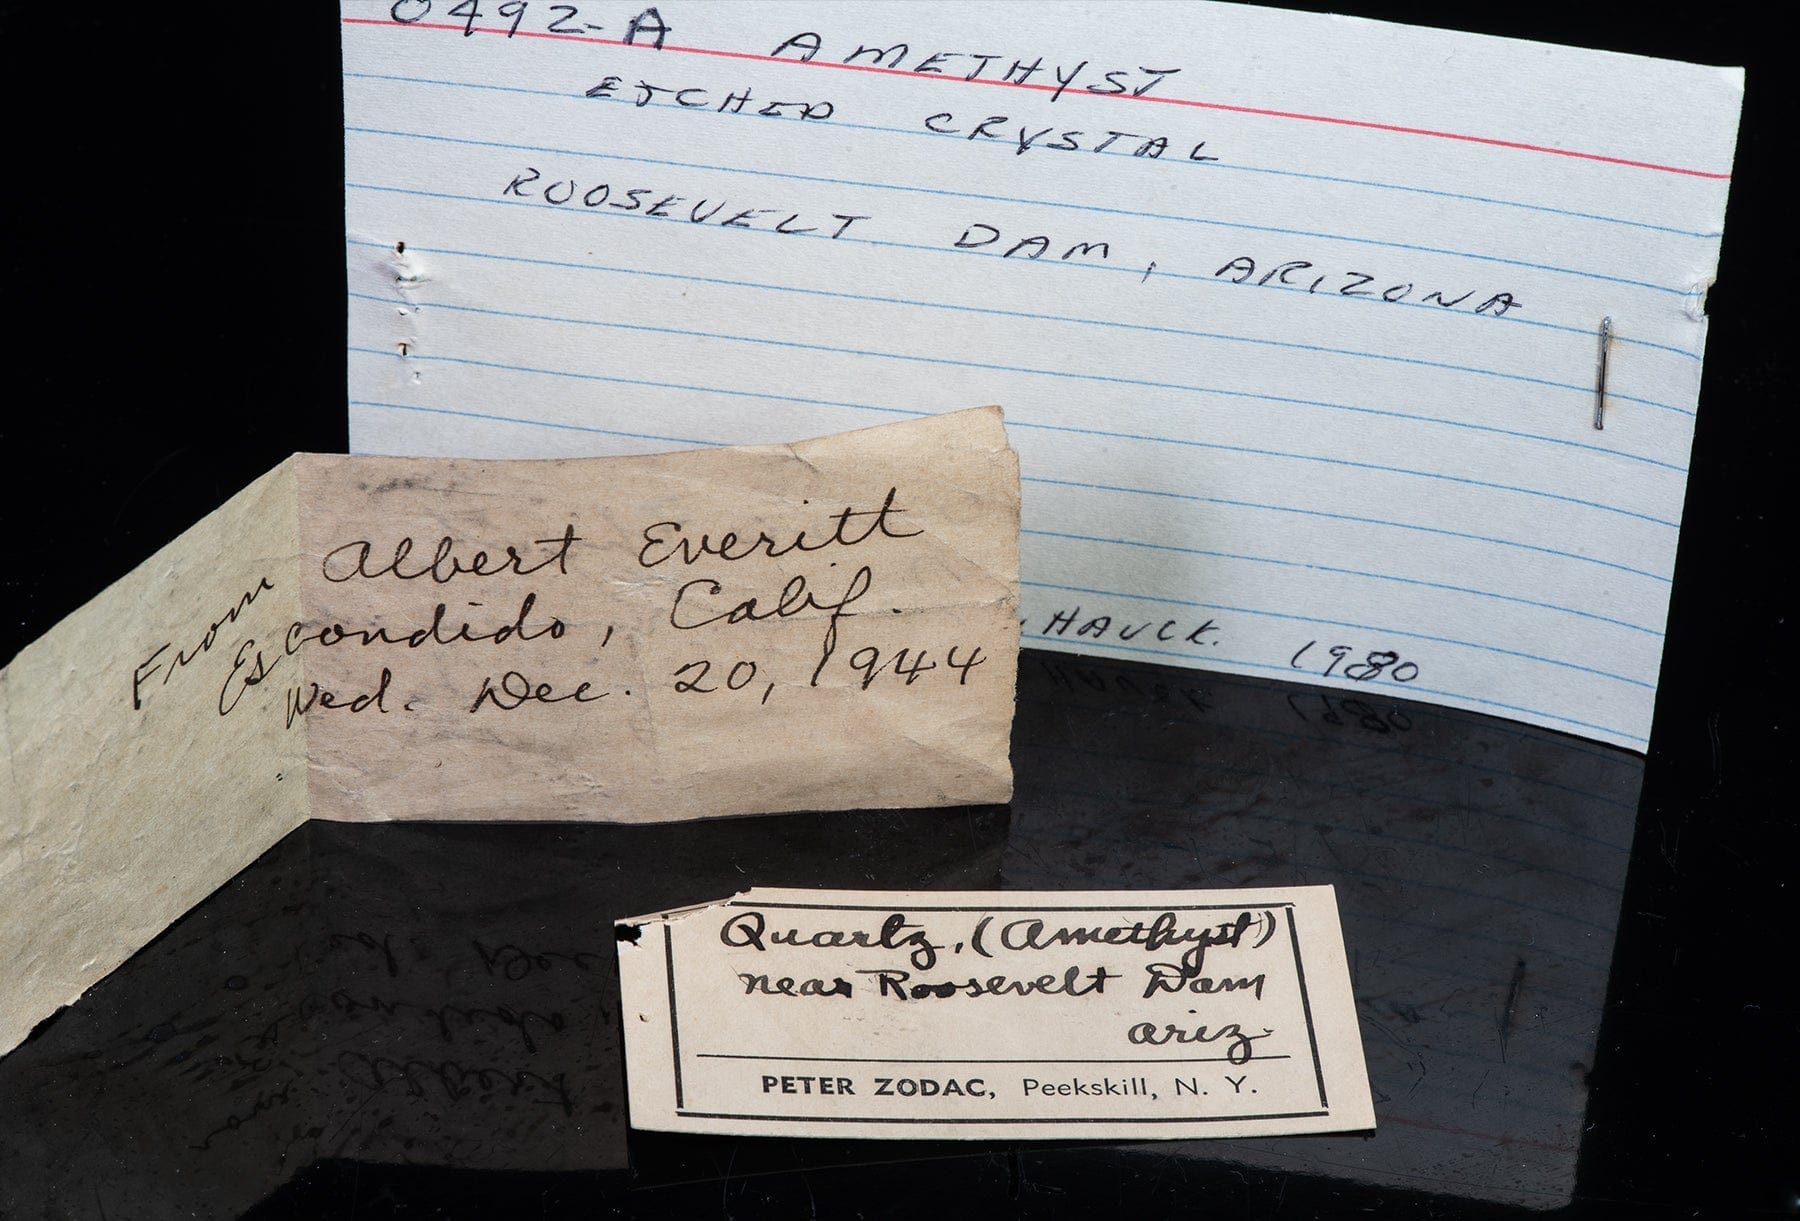 0492-A AMETHYST
ETCHED CRYSTAL
ROOSEVELT DAM, ARIZONA
. HAUCK. 1980
From Albert Everitt
Escondido, Calif.
Wed. Dec. 20, 1944
Quartz, (Amethyst)
near Roosevelt Dam
Ariz.
PETER ZODAC, Peekskill, N. Y.